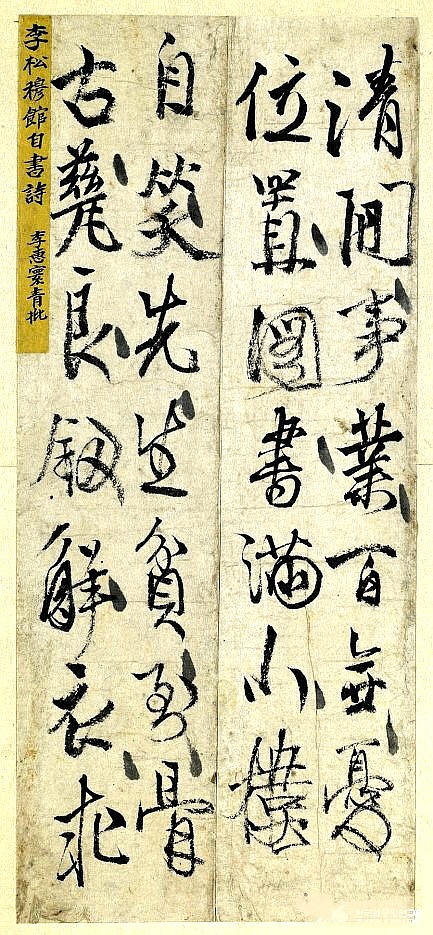 清閒事業百無憂
位置圖書滿小樓
自笑先生貧到骨
古甆良釼解衣求
李松穆館自書詩
李惠寰青批